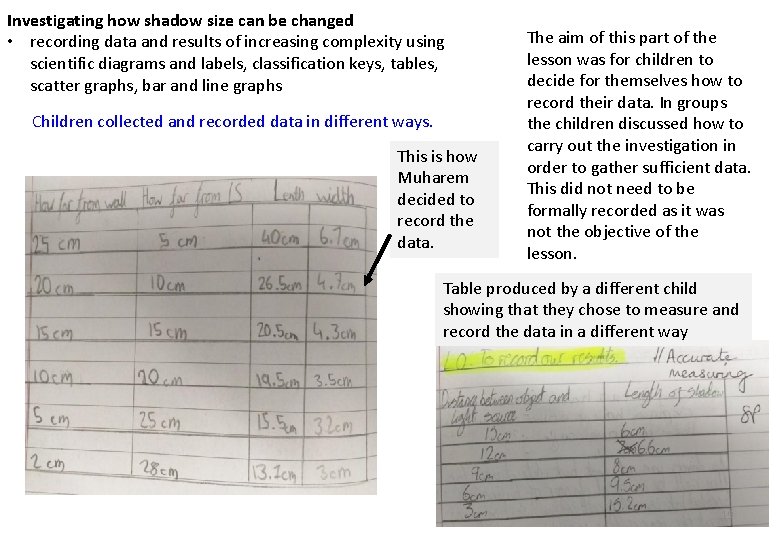 Investigating how shadow size can be changed
• recording data and results of increasing complexity using
scientific diagrams and labels, classification keys, tables,
scatter graphs, bar and line graphs
Children collected and recorded data in different ways.
This is how
Muharem
decided to
record the
data.
The aim of this part of the
lesson was for children to
decide for themselves how to
record their data. In groups
the children discussed how to
carry out the investigation in
order to gather sufficient data.
This did not need to be
formally recorded as it was
not the objective of the
lesson.
How far from wall How far from LS Lenth width
25 cm 5 cm 40cm 6.7cm
20 cm 10cm 26.5cm 4.7cm
15cm 15 cm 20.5cm 4.3cm
10cm 20cm 19.5cm 3.5cm
5 cm 25 cm 15.5cm 32cm
2 cm 28cm 13.1cm 3cm
Table produced by a different child
showing that they chose to measure and
record the data in a different way
L.O. To record our results. // Accurate
measuring
Distance between object and Length of shadow
light source SP
13cm 6cm
12cm 6.6cm
9cm 8cm
6cm 9.5cm
3cm 15.2cm